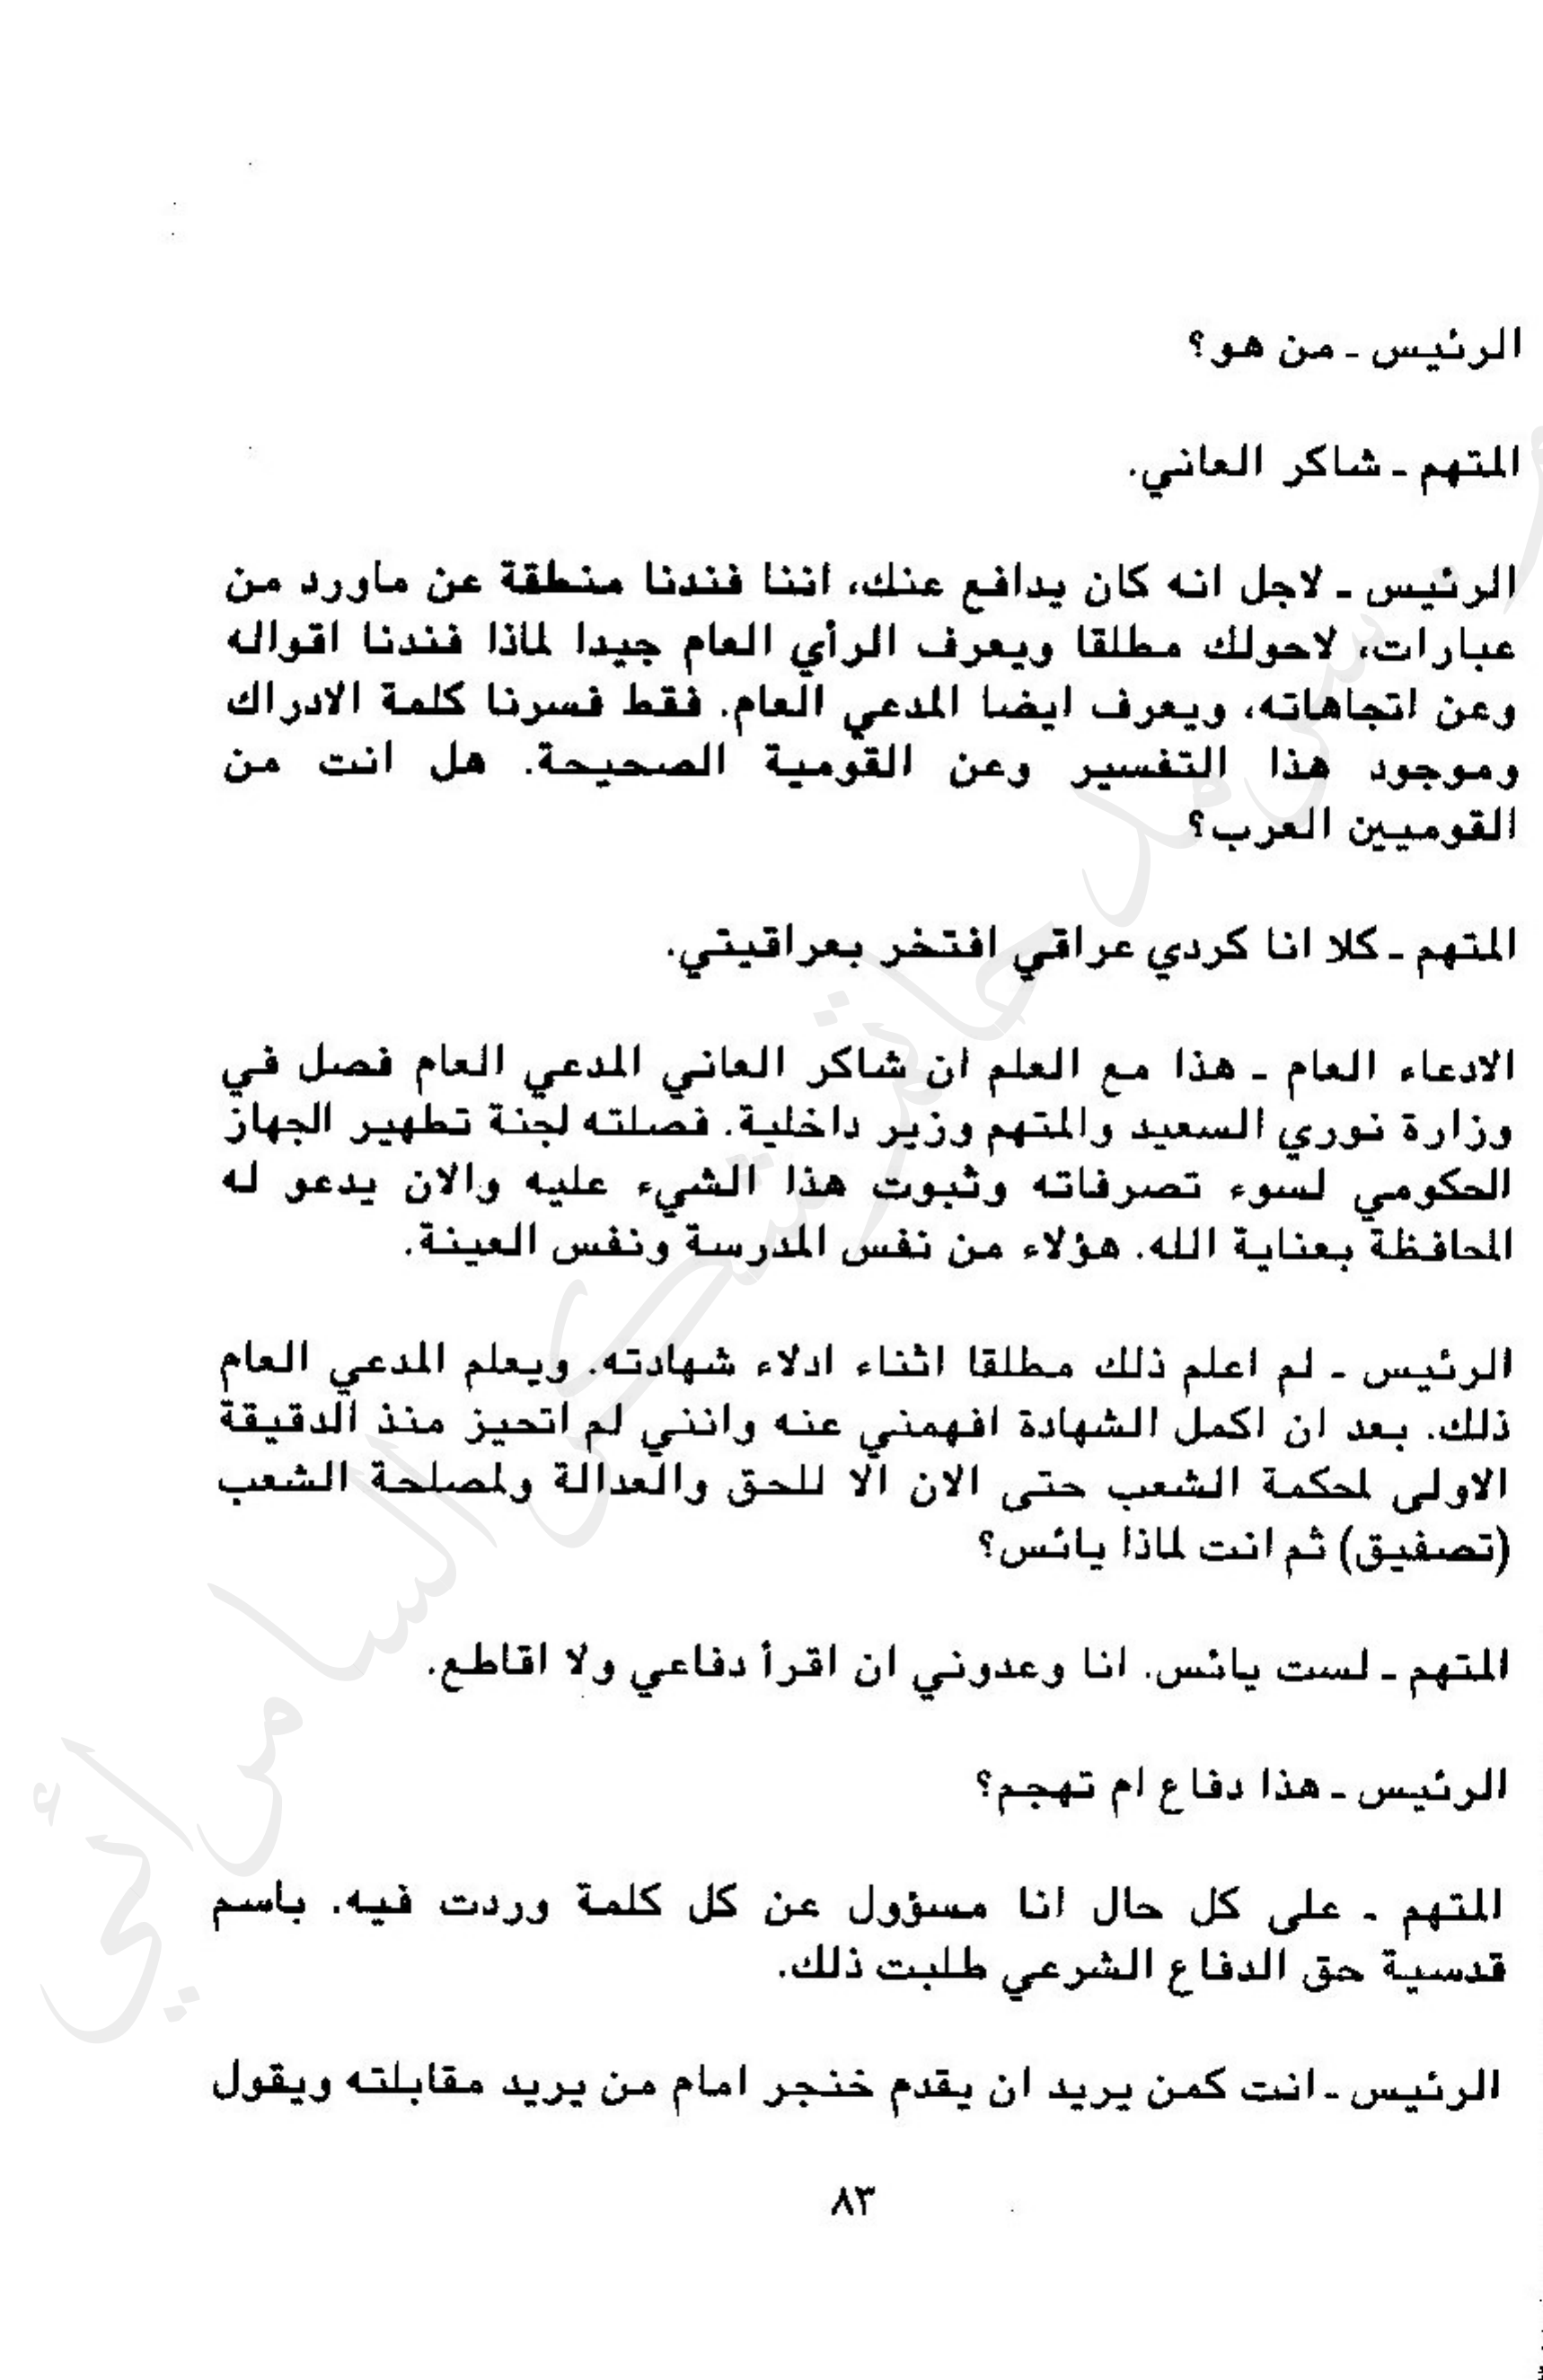 الرئيس ـ من هو؟
المتهم ـ شاكر العاني.
الرئيس ـ لاجل انه كان يدافع عنك، اننا فندنا منطقة عن ماورد من
عبارات، لاحولك مطلقا ويعرف الرأي العام جيدا لماذا فندنا اقواله
وعن اتجاهاته، ويعرف ايضا المدعي العام. فقط فسرنا كلمة الادراك
وموجود هذا التفسير وعن القومية الصحيحة. هل انت من
القوميين العرب؟
المتهم ـ كلا انا كردي عراقي افتخر بعراقيتي.
الادعاء العام ـ هذا مع العلم ان شاكر العاني المدعي العام فصل في
وزارة نوري السعيد والمتهم وزير داخلية. فصلته لجنة تطهير الجهاز
الحكومي لسوء تصرفاته وثبوت هذا الشيء عليه والان يدعو له
المحافظة بعناية الله. هؤلاء من نفس المدرسة ونفس العينة.
الرئيس ـ لم اعلم ذلك مطلقا اثناء ادلاء شهادته. ويعلم المدعي العام
ذلك. بعد ان اكمل الشهادة افهمني عنه وانني لم اتحيز منذ الدقيقة
الاولى لمحكمة الشعب حتى الان الا للحق والعدالة ولمصلحة الشعب
(تصفيق) ثم انت لماذا يائس؟
المتهم ـ لست يائس. انا وعدوني ان اقرأ دفاعي ولا اقاطع.
الرئيس ـ هذا دفاع ام تهجم؟
المتهم ـ على كل حال انا مسؤول عن كل كلمة وردت فيه. باسم
قدسية حق الدفاع الشرعي طلبت ذلك.
الرئيس ـ انت كمن يريد ان يقدم خنجر امام من يريد مقابلته ويقول
٨٣